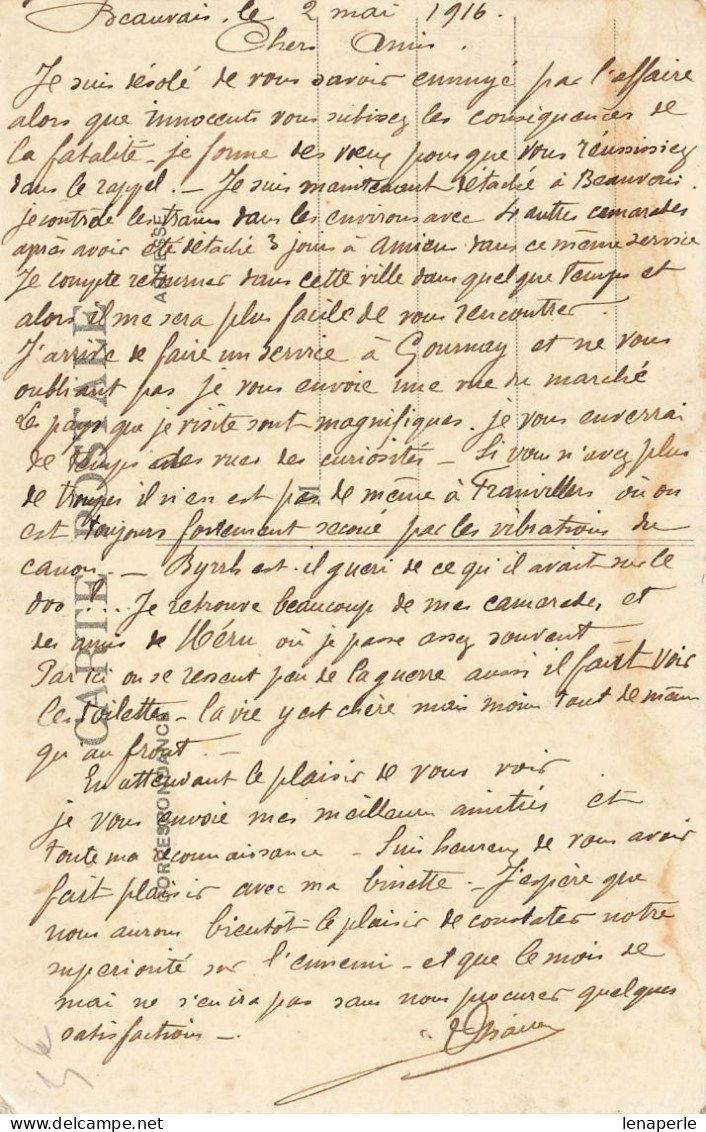 Beauvais, le 2 mai 1916.
Chers Amis.
Je suis désolé de vous savoir ennuyé par l'affaire
alors que innocents vous subissez les conséquences de
la fatalité - je forme des vœux pour que vous réussissiez
dans le rappel. - Je suis maintenant détaché à Beauvais.
je contrôle les trains dans les environs avec 4 autres camarades
après avoir été détaché 3 jours à Amiens dans ce même service
Je compte retourner dans cette ville dans quelque temps et
alors il me sera plus facile de vous rencontrer.
J'arrive de faire un service à Gournay et ne vous
oubliant pas je vous envoie une vue du marché
Les pays que je visite sont magnifiques. je vous enverrai
de temps des vues des curiosités - Si vous n'avez plus
de troupes il n'en est pas de même à Franvillers où on
est toujours fortement secoué par les vibrations du
canon. - Byrrh est-il guéri de ce qu'il avait sur le
dos ?... Je retrouve beaucoup de mes camarades et
des amis de Méru où je passe assez souvent
Par ici on se ressent peu de la guerre aussi il faut voir
les toilettes - la vie y est chère mais moins tout de même
qu'au front. -
En attendant le plaisir de vous voir
je vous envoie mes meilleures amitiés et
toute ma reconnaissance - Suis heureux de vous avoir
fait plaisir avec ma binette. - J'espère que
nous aurons bientôt le plaisir de constater notre
supériorité sur l'ennemi - et que le mois de
mai ne s'en ira pas sans nous procurer quelques
satisfactions -
CARTE POSTALE
CORRESPONDANCE
ADRESSE
M
lenaperle